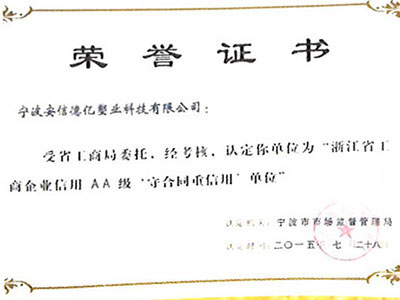 荣誉证书
宁波安信德亿塑业科技有限公司：
受省工商局委托，经考核，认定你单位为“浙江省工
商企业信用AA级“守合同重信用”单位”
认定机关：宁波市市场监督管理局
认定时间：二〇一五 七 二十八